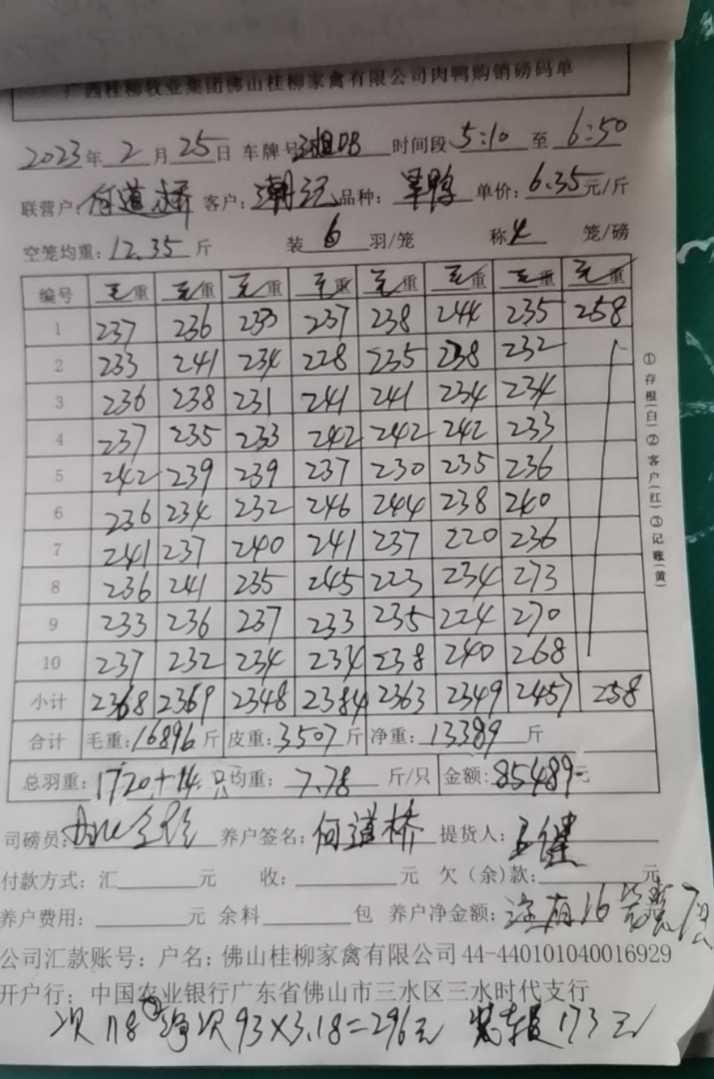 广西桂柳牧业集团佛山桂柳家禽有限公司肉鸭购销磅码单
2023年 2 月 25 日 车牌号 时间段 5:10 至 6:50
联营户: 何道桥 客户: 潮记 品种: 单价: 6.35 元/斤
空笼均重: 12.35 斤 装 6 羽/笼 称 4 笼/磅
编号 毛重 毛重 毛重 毛重 毛重 毛重 毛重 毛重
1 237 236 233 237 238 244 235 258
2 233 241 234 228 235 238 232
3 236 238 231 241 241 234 234
4 237 235 233 242 242 242 233
5 242 239 239 237 230 235 236
6 236 234 232 246 244 238 240
7 241 237 240 241 237 220 236
8 236 241 235 245 223 234 273
9 233 236 237 233 235 224 270
10 237 232 234 234 238 240 268
小计 2368 2369 2348 2384 2363 2349 2457 258
合计 毛重: 16896 斤 皮重: 3507 斤 净重: 13389 斤
总羽重: 1720+14 只 均重: 7.78 斤/只 金额: 85489 元
司磅员: 养户签名: 何道桥 提货人: 王健
付款方式: 汇 元 收: 元 欠(余)款: 元
养户费用: 元 余料 包 养户净金额: 16
公司汇款账号: 户名: 佛山桂柳家禽有限公司 44-440101040016929
开户行: 中国农业银行广东省佛山市三水区三水时代支行
次 118 净次 93×3.18=296元 173元
①存根(白)②客户(红)③记账(黄)